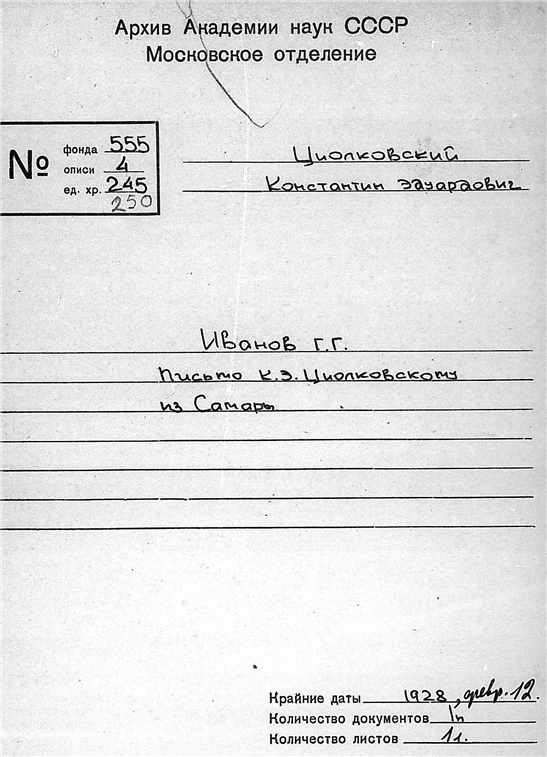 Архив Академии наук СССР
Московское отделение
№
фонда 555
описи 4
ед. хр. 245
250
Циолковский
Константин Эдуардович
Иванов Г.Г.
Письмо К.Э.Циолковскому
из Самары
Крайние даты 1928, февр. 12.
Количество документов 1п
Количество листов 1л.